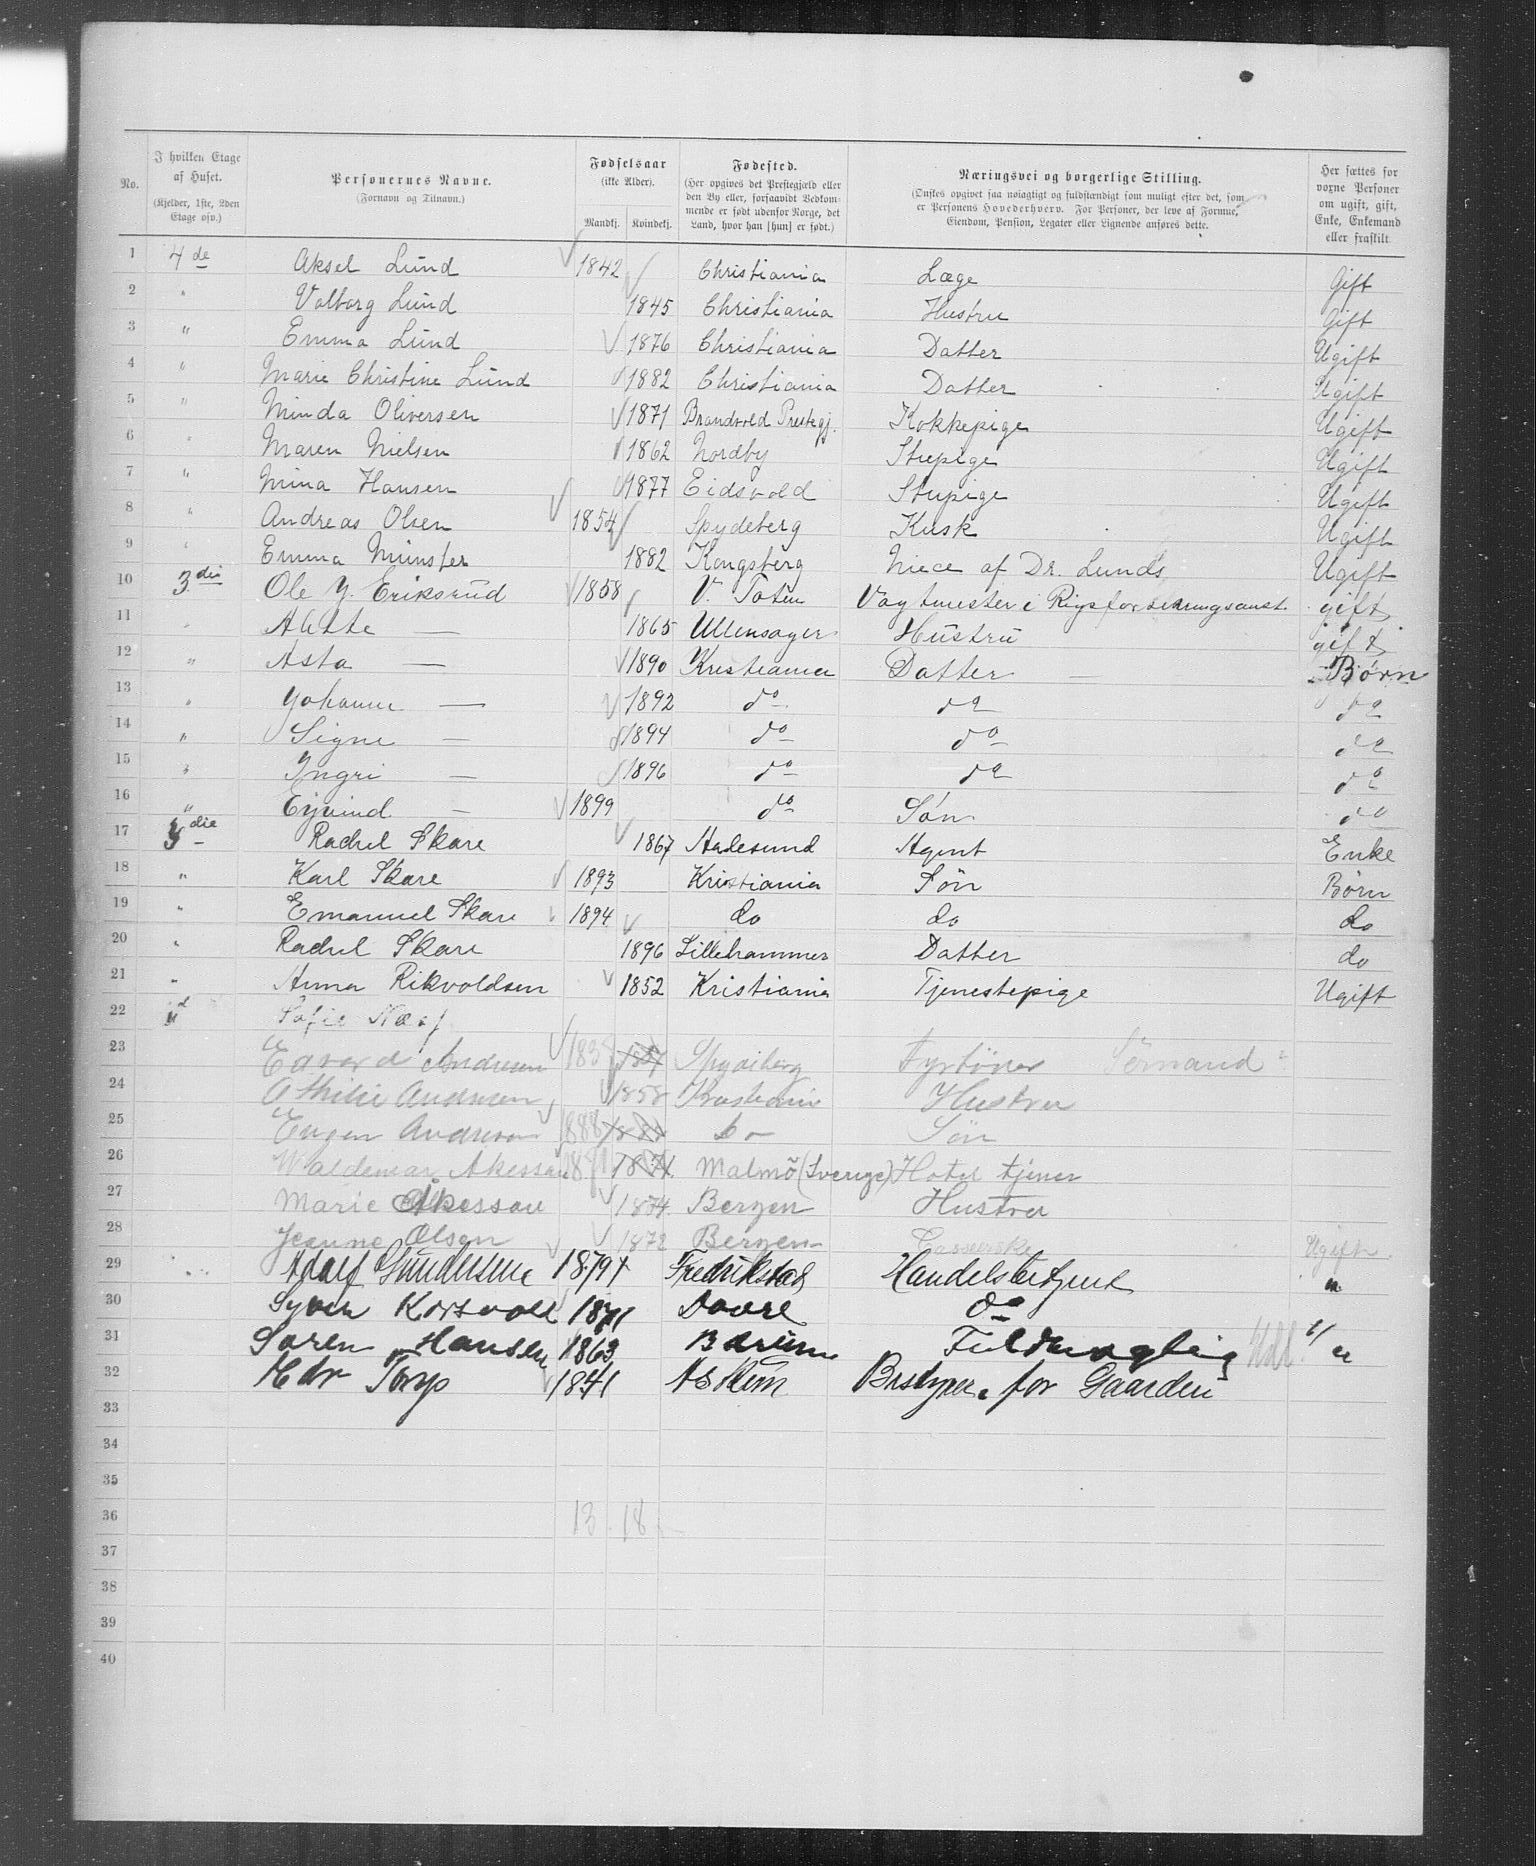 No.
I hvilken Etage af Huset. (Kjelder, 1ste, 2den Etage osv.)
Personernes Navne. (Fornavn og Tilnavn.)
Fødselsaar (ikke Alder). Mandkj. Kvindekj.
Fødested. (Her opgives det Prestegjæld eller den By eller, forsaavidt Vedkommende er født udenfor Norge, det Land, hvor han [hun] er født.)
Næringsvei og borgerlige Stilling. (Ønskes opgivet saa nøiagtigt og fuldstændigt som muligt efter det, som er Personens Hovederhverv. For Personer, der leve af Formue, Eiendom, Pension, Legater eller Lignende anføres dette.
Her sættes for voxne Personer om ugift, gift, Enke, Enkemand eller fraskilt
1 4de Aksel Lund 1842 Christiania Læge Gift
2 " Valborg Lund 1845 Christiania Hustru Gift
3 " Emma Lund 1876 Christiania Datter Ugift
4 " Marie Christine Lund 1882 Christiania Datter Ugift
5 " Minda Oliversen 1871 Brandvold Prestegj. Kokkepige Ugift
6 " Maren Nielsen 1862 Nordby Stupige Ugift
7 " Mina Hansen 1877 Eidsvold Stupige Ugift
8 " Andreas Olsen 1854 Spydeberg Kusk Ugift
9 " Emma Münster 1882 Kongsberg Niece af Dr. Lunds Ugift
10 3die Ole J. Eriksrud 1858 V. Toten Vagtmester i Rigsforsikringsanst. gift
11 " Alette — 1865 Ullensager Hustru gift
12 " Asta — 1890 Kristiania Datter — Børn
13 " Johanne — 1892 do do do
14 " Signe — 1894 do do do
15 " Yngri — 1896 do do do
16 " Ejvind — 1899 do Søn do
17 3die Rachel Skare 1867 Aalesund Agent Enke
18 " Karl Skare 1893 Kristiania Søn Børn
19 " Emanuel Skare 1894 do do do
20 " Rachel Skare 1896 Lillehammer Datter do
21 " Anna Rikvoldsen 1852 Kristiania Tjenestepige Ugift
22 Sofie
23 Edvard Andresen Spydeberg Fyrbøner Sømand
24 Andresen 1858 Kristiania Hustru
25 Eugen Andresen 1888 do Søn
26 Waldemar Akessan Malmö (Sverige) Hotel tjener
27 Marie Akessan 1874 Bergen Hustru
28 Jeanne Olsen 1872 Bergen Ugift
29 Adolf Gundersene 1879 Fredrikstad Handelsbetjent "
30 Syver Korsvold 1871 Dovre do "
31 Søren Hansen 1863 Bærum "
32 Torp 1841 Askim Bestyrer for Gaarden
33
34
35
36 13 18
37
38
39
40